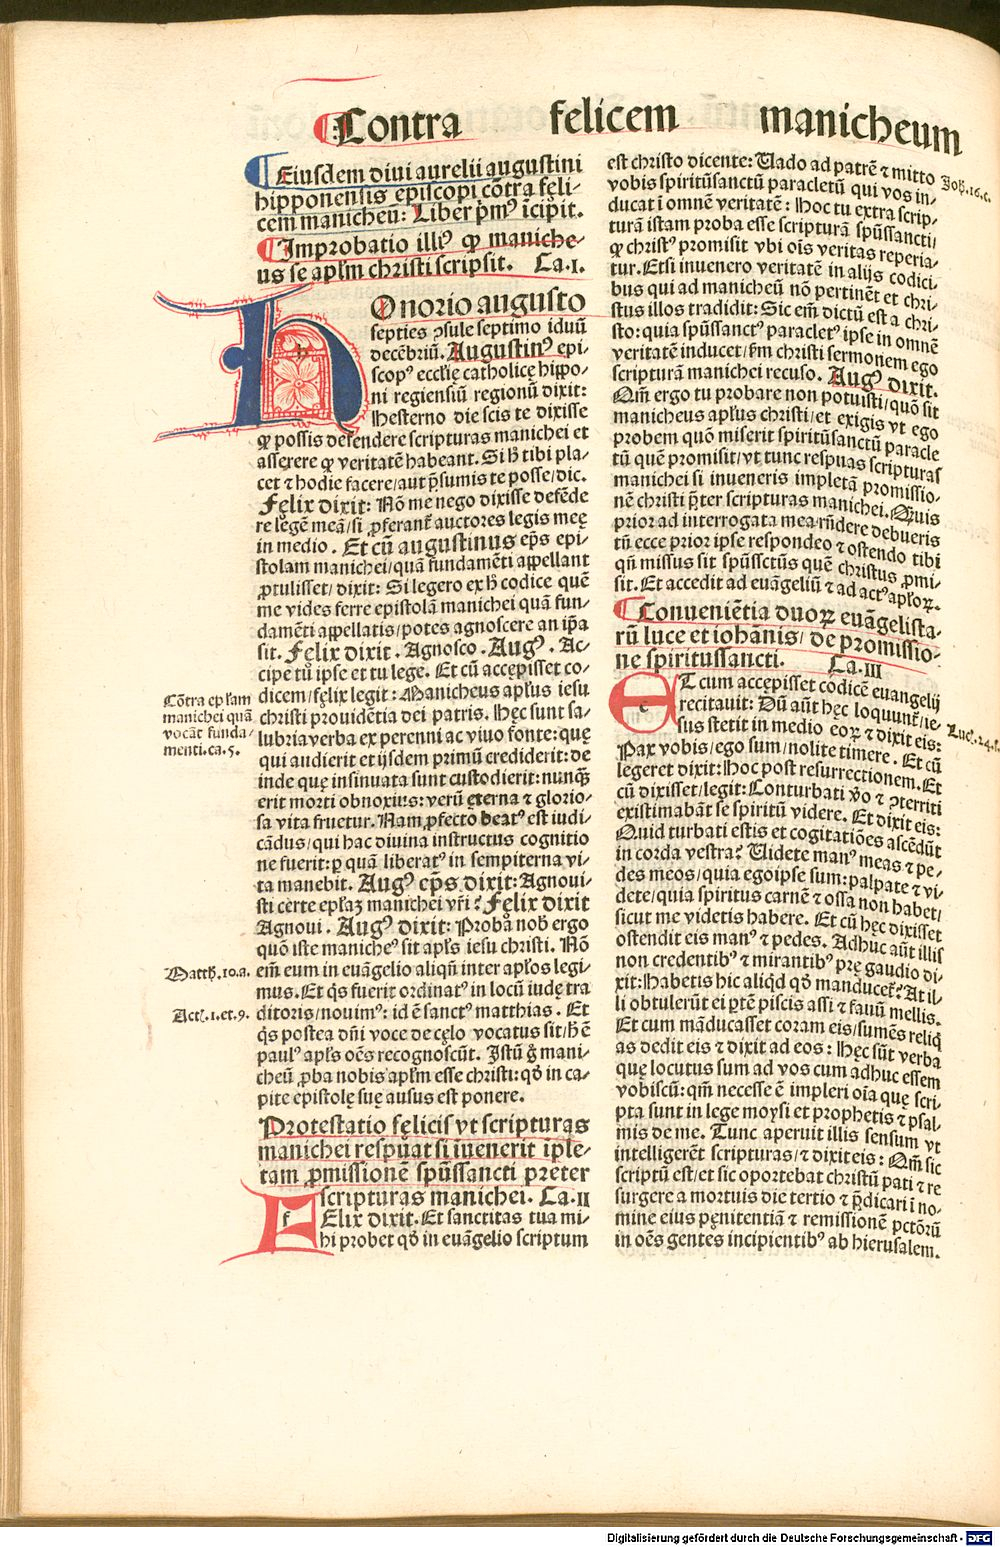 Contra felicem manicheum
Eiusdem diui aurelii augustini
hipponensis episcopi cōtra feli-
cem manicheū: Liber pͥmꝰ īcipit.
Improbatio illiꝰ ꝙ maniche-
us se apl̄m christi scripsit. Ca.I.
HOnorio augusto
septies ↄsule septimo iduū
decēbriū. Augustinꝰ epi-
scopꝰ eccl̄ie catholicę hippo-
ni regiensiū regionū dixit:
Hesterno die scis te dixisse
ꝙ possis defendere scripturas manichei et
asserere ꝙ veritatē habeant. Si hͦ tibi pla-
cet ⁊ hodie facere/aut p̄sumis te posse/dic.
Fęlix dixit: Nō me nego dixisse defēde
re legē meā/si ꝓferant᷑ auctores legis meę
in medio. Et cū augustinus ep̄s epi-
stolam manichei/quā fundamēti appellant
ꝓtulisset/dixit: Si legero ex hͦ codice quē
me vides ferre epistolā manichei quā fun-
damēti appellatis/potes agnoscere an ip̄a
sit. Fęlix dixit. Agnosco. Augꝰ. Ac-
cipe tu ipse et tu lege. Et cū accępisset co-
dicem/fęlix legit: Manicheus apl̄us iesu
christi prouidētia dei patris. Hęc sunt sa-
lubria verba ex perenni ac viuo fonte: quę
qui audierit et ijsdem primū crediderit: de
inde quę insinuata sunt custodierit: nunqͣ̄
erit morti obnoxius: verū eterna ⁊ glorio-
sa vita fruetur. Nam ꝓfecto beatꝰ est iudi-
cādus/qui hac diuina instructus cognitio
ne fuerit: ꝑ quā liberatꝰ in sempiterna vi-
ta manebit. Augꝰ ep̄s dixit: Agnoui-
sti certe epl̄aꝫ manichei vr̄i? Fęlix dixit
Agnoui. Augꝰ dixit: Proba nobꝭ ergo
quō iste manicheꝰ sit apl̄s iesu christi. Nō
em̄ eum in euāgelio aliqn̄ inter apl̄os legi-
mus. Et qͥs fuerit ordinatꝰ in locū iudę tra
ditoris/nouimꝰ: id ē sanctꝰ matthias. Et
qͥs postea dn̄i voce de cęlo vocatus sit/hͦ ē
paulꝰ apl̄s oēs recognoscūt. Istū g̊ mani-
cheū ꝓba nobis apl̄m esse christi: qđ in ca-
pite epistolę suę ausus est ponere.
Protestatio fęlicis vt scripturas
manichei respuat si īuenerit īple-
tam ꝓmissionē spūssancti pręter
scripturas manichei. Ca.II
FElix dixit. Et sanctitas tua mi-
hi probet qđ in euāgelio scriptum
Cōtra epl̄am
manichei quā
vocāt funda-
menti.ca.5.
Matth.10.a.
Act.1.et.9.
est christo dicente: Uado ad patrē ⁊ mitto
vobis spiritūsanctū paracletū qui vos in-
ducat ī omnē veritatē: Hoc tu extra scrip-
turā istam proba esse scripturā spūssancti/
ꝙ christꝰ promisit vbi oīs veritas reperia-
tur. Etsi inuenero veritatē in alijs codici-
bus qui ad manicheū nō pertinēt et chri-
stus illos tradidit: Sic em̄ dictū est a chri-
sto: quia spūssanctꝰ paracletꝰ ipse in omnē
veritatē inducet/ẜm christi sermonem ego
scripturā manichei recuso. Augꝰ dixit.
Qm̄ ergo tu probare non potuisti/quō sit
manicheus apl̄us christi/et exigis vt ego
probem quō miserit spiritūsanctū paracle
tū quē promisit/vt tunc respuas scripturas
manichei si inueneris impletā promissio-
nē christi p̄ter scripturas manichei. Quis
prior ad interrogata mea rn̄dere debueris
tn̄ ecce prior ipse respondeo ⁊ ostendo tibi
qn̄ missus sit spūssctūs quē christus ꝓmi-
sit. Et accedit ad euāgeliū ⁊ ad actꝰ apl̄oꝝ.
Conueniētia duoꝝ euāgelista-
rū luce et iohānis/ de promissio-
ne spiritussancti. Ca.III
ET cum accępisset codicē euangelij
recitauit: Dū aūt hęc loquunt᷑/ie-
sus stetit in medio eoꝝ ⁊ dixit eis:
Pax vobis/ego sum/nolite timere. Et cū
legeret dixit: Hoc post resurrectionem. Et
cū dixisset/legit: Conturbati v̊o ⁊ ↄterriti
existimabāt se spiritū videre. Et dixit eis:
Quid turbati estis et cogitatiōes ascēdūt
in corda vestra? Uidete manꝰ meas ⁊ pe-
des meos/quia ego ipse sum: palpate ⁊ vi-
dete/quia spiritus carnē ⁊ ossa non habet/
sicut me videtis habere. Et cū hęc dixisset
ostendit eis manꝰ ⁊ pedes. Adhuc aūt illis
non credentibꝰ ⁊ mirantibꝰ prę gaudio di-
xit: Habetis hic aliqͥd qđ manducet᷑? At il-
li obtulerūt ei ꝑtē piscis assi ⁊ fauū mellis.
Et cum māducasset coram eis/sumēs reliqͥ
as dedit eis ⁊ dixit ad eos: Hęc sūt verba
quę locutus sum ad vos cum adhuc essem
vobiscū: qm̄ necesse ē impleri oīa quę scri-
pta sunt in lege moysi et prophetis ⁊ psal-
mis de me. Tunc aperuit illis sensum vt
intelligerēt scripturas/⁊ dixit eis: Qm̄ sic
scriptū est/et sic oportebat christū pati ⁊ re
surgere a mortuis die tertio ⁊ p̄dicari ī no-
mine eius pęnitentiā ⁊ remissionē pctōrū
in oēs gentes incipientibꝰ ab hierusalem.
Joh.16.c.
Luc.24.f.
Digitalisierung gefördert durch die Deutsche Forschungsgemeinschaft - DFG